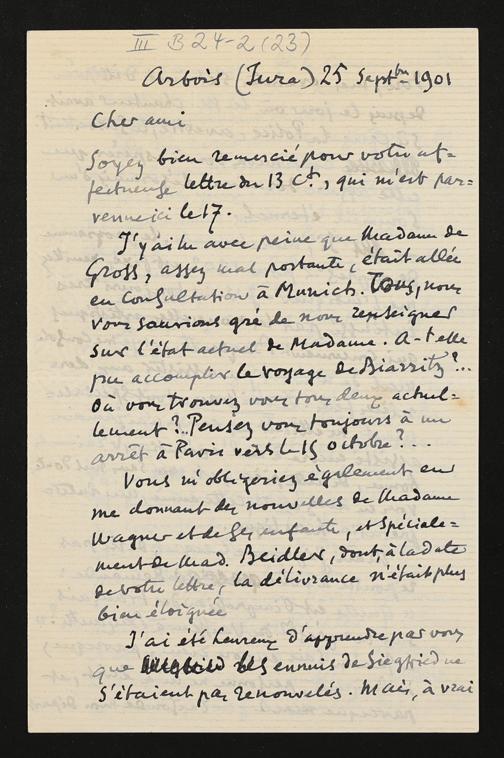 III B 24-2 (23)
Arbois (Jura) 25 Septbre 1901
Cher ami
Soyez bien remercié pour votre af=
fectueuse lettre du 13 Ct, qui m'est par=
venue ici le 17.
J'y ai lu avec peine que Madame de
Gross, assez mal portante, était allée
en Consultation à Munich. Tous, nous
vous saurions gré de nous renseigner
sur l'état actuel de Madame. A-t-elle
pu accomplir le voyage de Biarritz?...
Où vous trouvez vous tous deux actuel=
lement?.. Pensez vous toujours à un
arrêt à Paris vers le 15 octobre?...
Vous m'obligeriez également en
me donnant des nouvelles de Madame
Wagner et de Ses enfants, et Spéciale=
ment de Mad. Beidler, dont, à la date
de votre lettre, la délivrance n'était plus
bien éloignée
J'ai été heureux d'apprendre par vous
que les ennuis de Siegfried ne
S'étaient pas renouvelés. Mais, à vrai